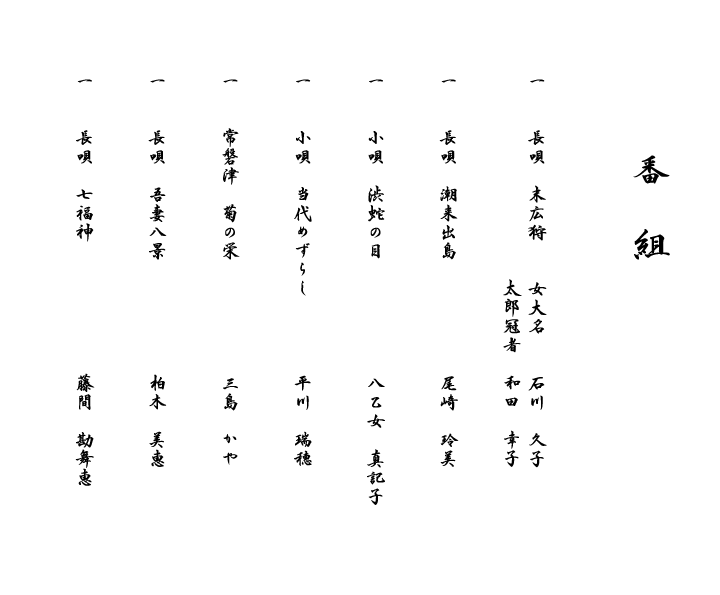 番組
一 長唄 末広狩 女大名 石川 久子
太郎冠者 和田 幸子
一 長唄 潮来出島 尾崎 玲美
一 小唄 渋蛇の目 八乙女 真記子
一 小唄 当代めずらし 平川 瑞穂
一 常磐津 菊の栄 三島 かや
一 長唄 吾妻八景 柏木 美恵
一 長唄 七福神 藤間 勘舞恵